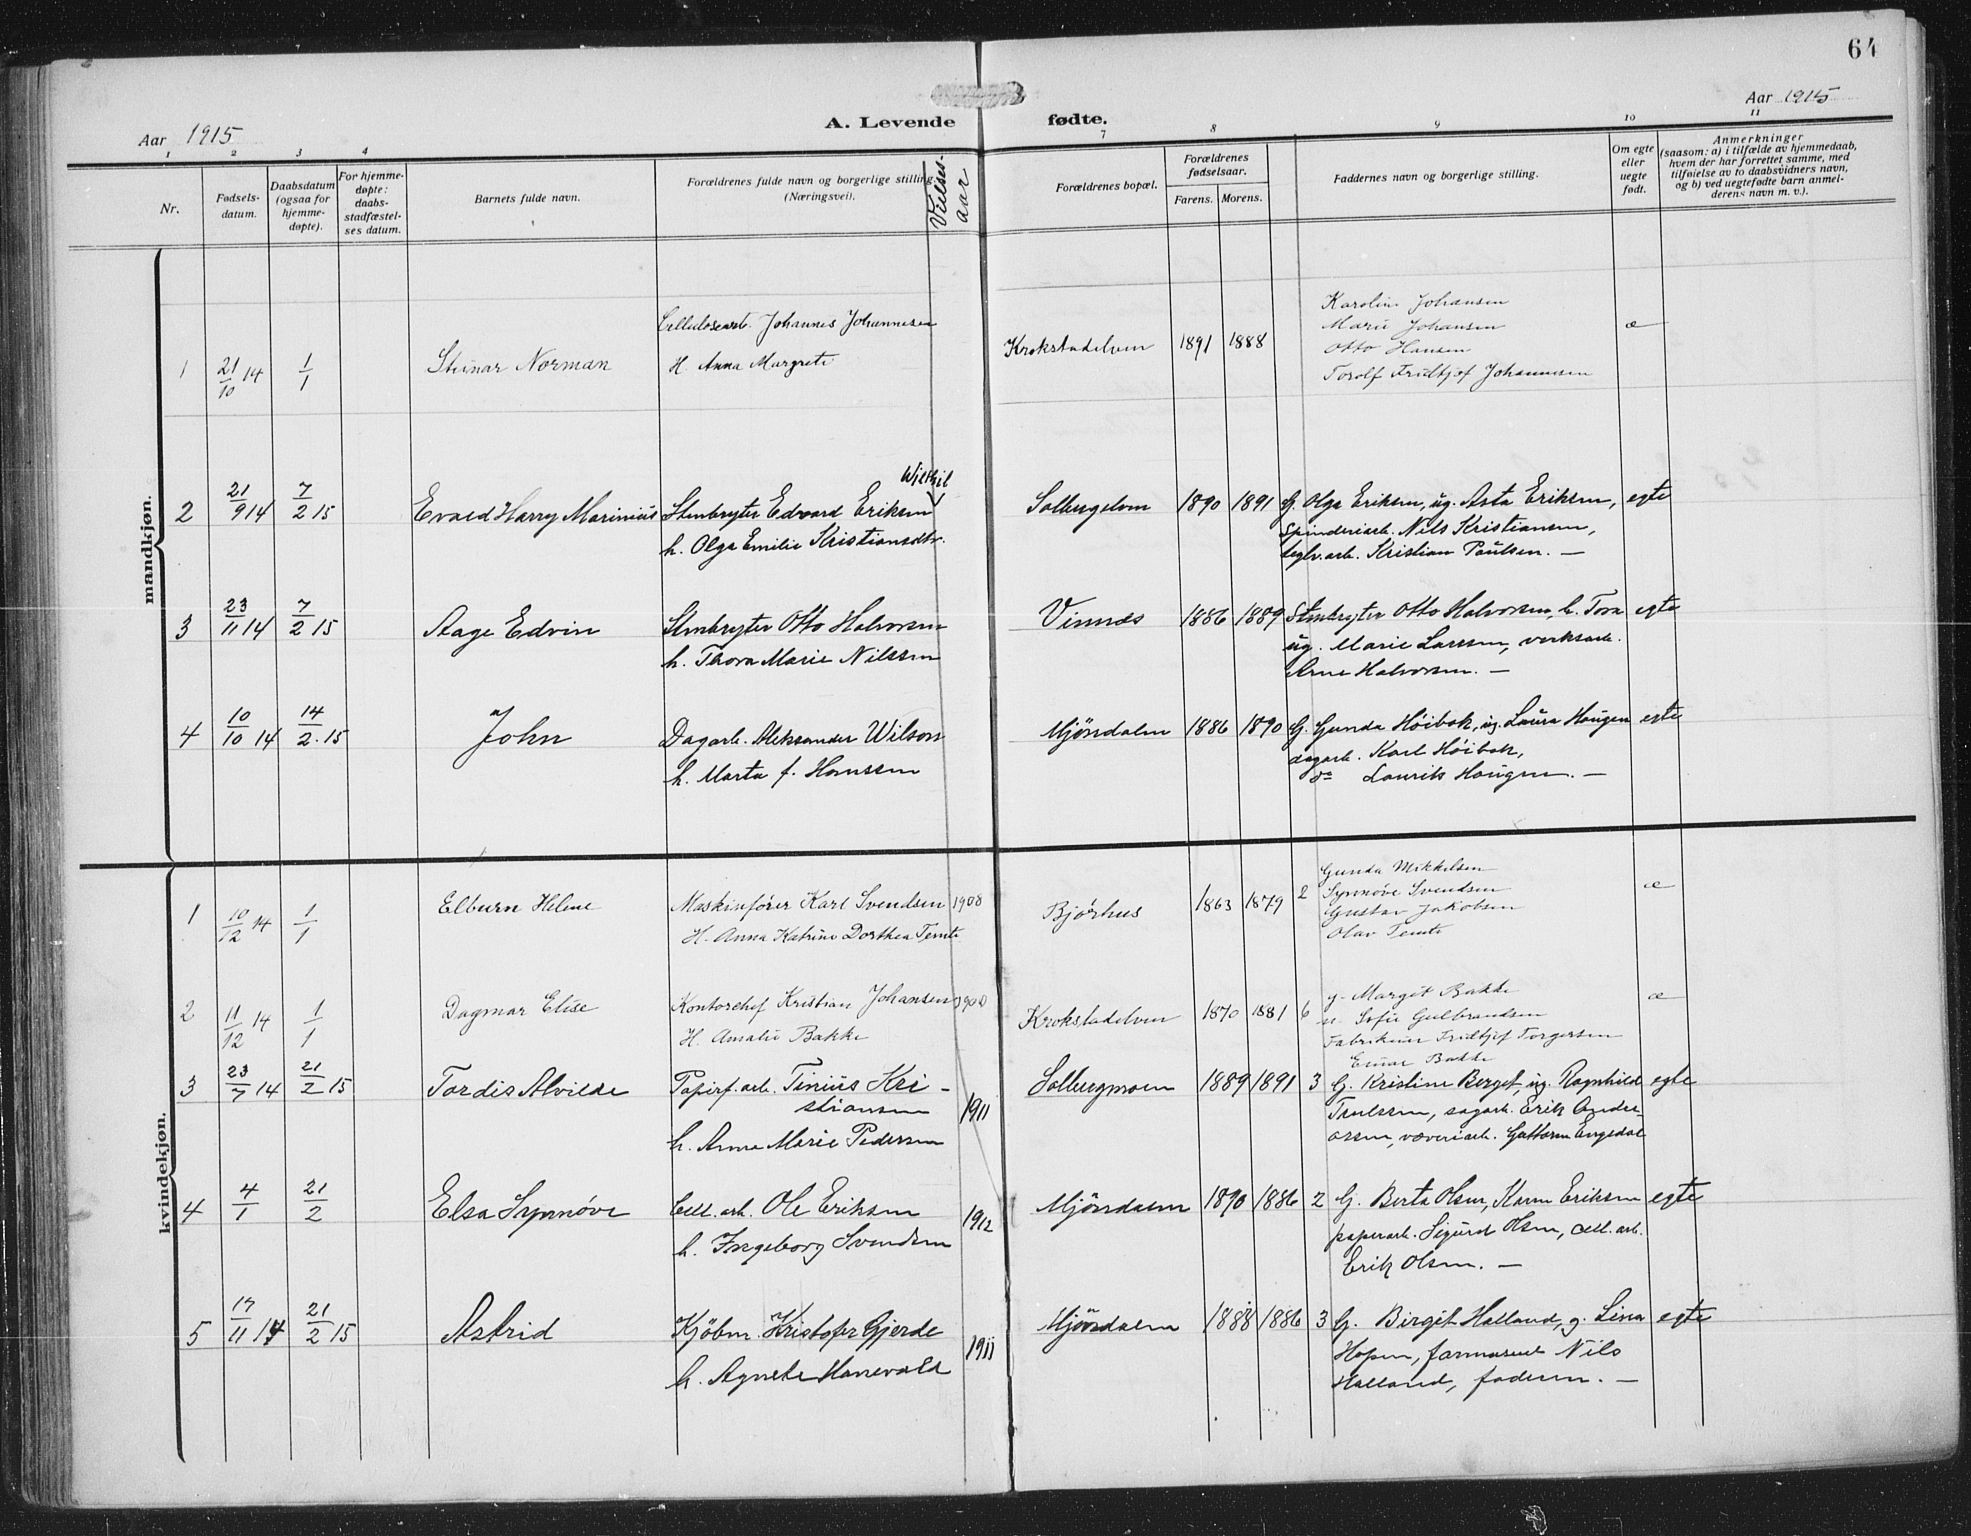 64
Aar 1915
A. Levende fødte.
Aar 1915
1 2 3 4 7 8 9 10 11
Nr.
Fødsels-
datum.
Daabsdatum
(ogsaa for
hjemme-
døpte).
For hjemme-
døpte:
daabs-
stadfæstel-
ses datum.
Barnets fulde navn.
Forældrenes fulde navn og borgerlige stilling
(Næringsvei).
Vielses-
aar
Forældrenes bopæl.
Forældrenes
fødselsaar.
Farens. Morens.
Faddernes navn og borgerlige stilling.
Om egte
eller
uegte
født.
Anmerkninger
(saasom: a) i tilfælde av hjemmedaab,
hvem der har forrettet samme, med
tilføielse av to daabsvidners navn,
og b) ved uegtefødte barn anmel-
derens navn m. v.).
mandkjøn.
1 21/10 14 1/1 Steinar Norman
Cellulosearb. Johannes Johannesen
H. Anna Margrete
Krokstadelven 1891 1888
Karoline Johansen
Marie Johansen
Otto Hansen
Torolf Fridtjof Johannesen
æ
2 21/9 14 7/2 15 Evald Harry Marinius
Stenbryter Edvard Eriksen
h. Olga Emilie Kristiansdtr.
Solbergelven 1890 1891
G. Olga Eriksen, ug. Asta Eriksen,
Spinderiarb. Nils Kristiansen,
teglv.arb. Kristian Paulsen. —
egte
3 23/11 14 7/2 15 Aage Edvin
Stenbryter Otto Halvorsen
h. Thora Marie Nilssen
Vinnes 1886 1889
Stenbryter Otto Halvorsen, h. Tora
ug. Marie Larssen, verksarb.
Arne Halvorsen. —
egte
4 10/10 14 14/2 15 John
Dagarb. Aleksander Wilson
h. Marta f. Hanssen
Mjöndalen 1886 1890
G. Gunda Höibak, ug. Laura Haugen
dagarb. Karl Höibak,
do Laurits Haugen. —
egte
kvindekjøn.
1 10/12 14 1/1 Elburn Helene
Maskinfører Karl Svendsen 1908
H. Anna Katrine Dorthea Temte
Bjørhus 1863 1879 2
Gunda Mikkelsen
Synnøve Svendsen
Gustav Jakobsen
Olav Temte
æ
2 11/12 14 1/1 Dagmar Elise
Kontorchef Kristian Johansen 1900
H. Amalie Bakke
Krokstadelven 1870 1881 6
g. Margit Bakke
u. Sofie Gulbrandsen
Fabrikeier Fridtjof Torgersen
Einar Bakke
æ
3 23/7 14 21/2 15 Tordis Alvilde
Papirf. arb. Tinius Kri-
stiansen
h. Anna Marie Pedersen
1911
Solbergmoen 1889 1891 3
G. Kristine Berget, ug. Ragnhild
Trulssen, sagarb. Erik Ander-
assen, væveriarb. Guttorm Engedal
egte
4 4/1 21/2 Elsa Synnöve
Cell. arb. Ole Eriksen
h. Ingeborg Svendsen
1912
Mjöndalen 1890 1886 2
G. Berta Olsen, Karen Eriksen
paperarb. Sigurd Olsen, cell. arb.
Erik Olsen. —
egte
5 17/11 14 21/2 15 Astrid
Kjöbm. Kristofer Gjerde
h. Agnete Hanevold
1911
Mjöndalen 1888 1886 3
G. Birgit Halland, g. Lina
Hopen, farmaceut Nils
Halland, faderen. —
egte